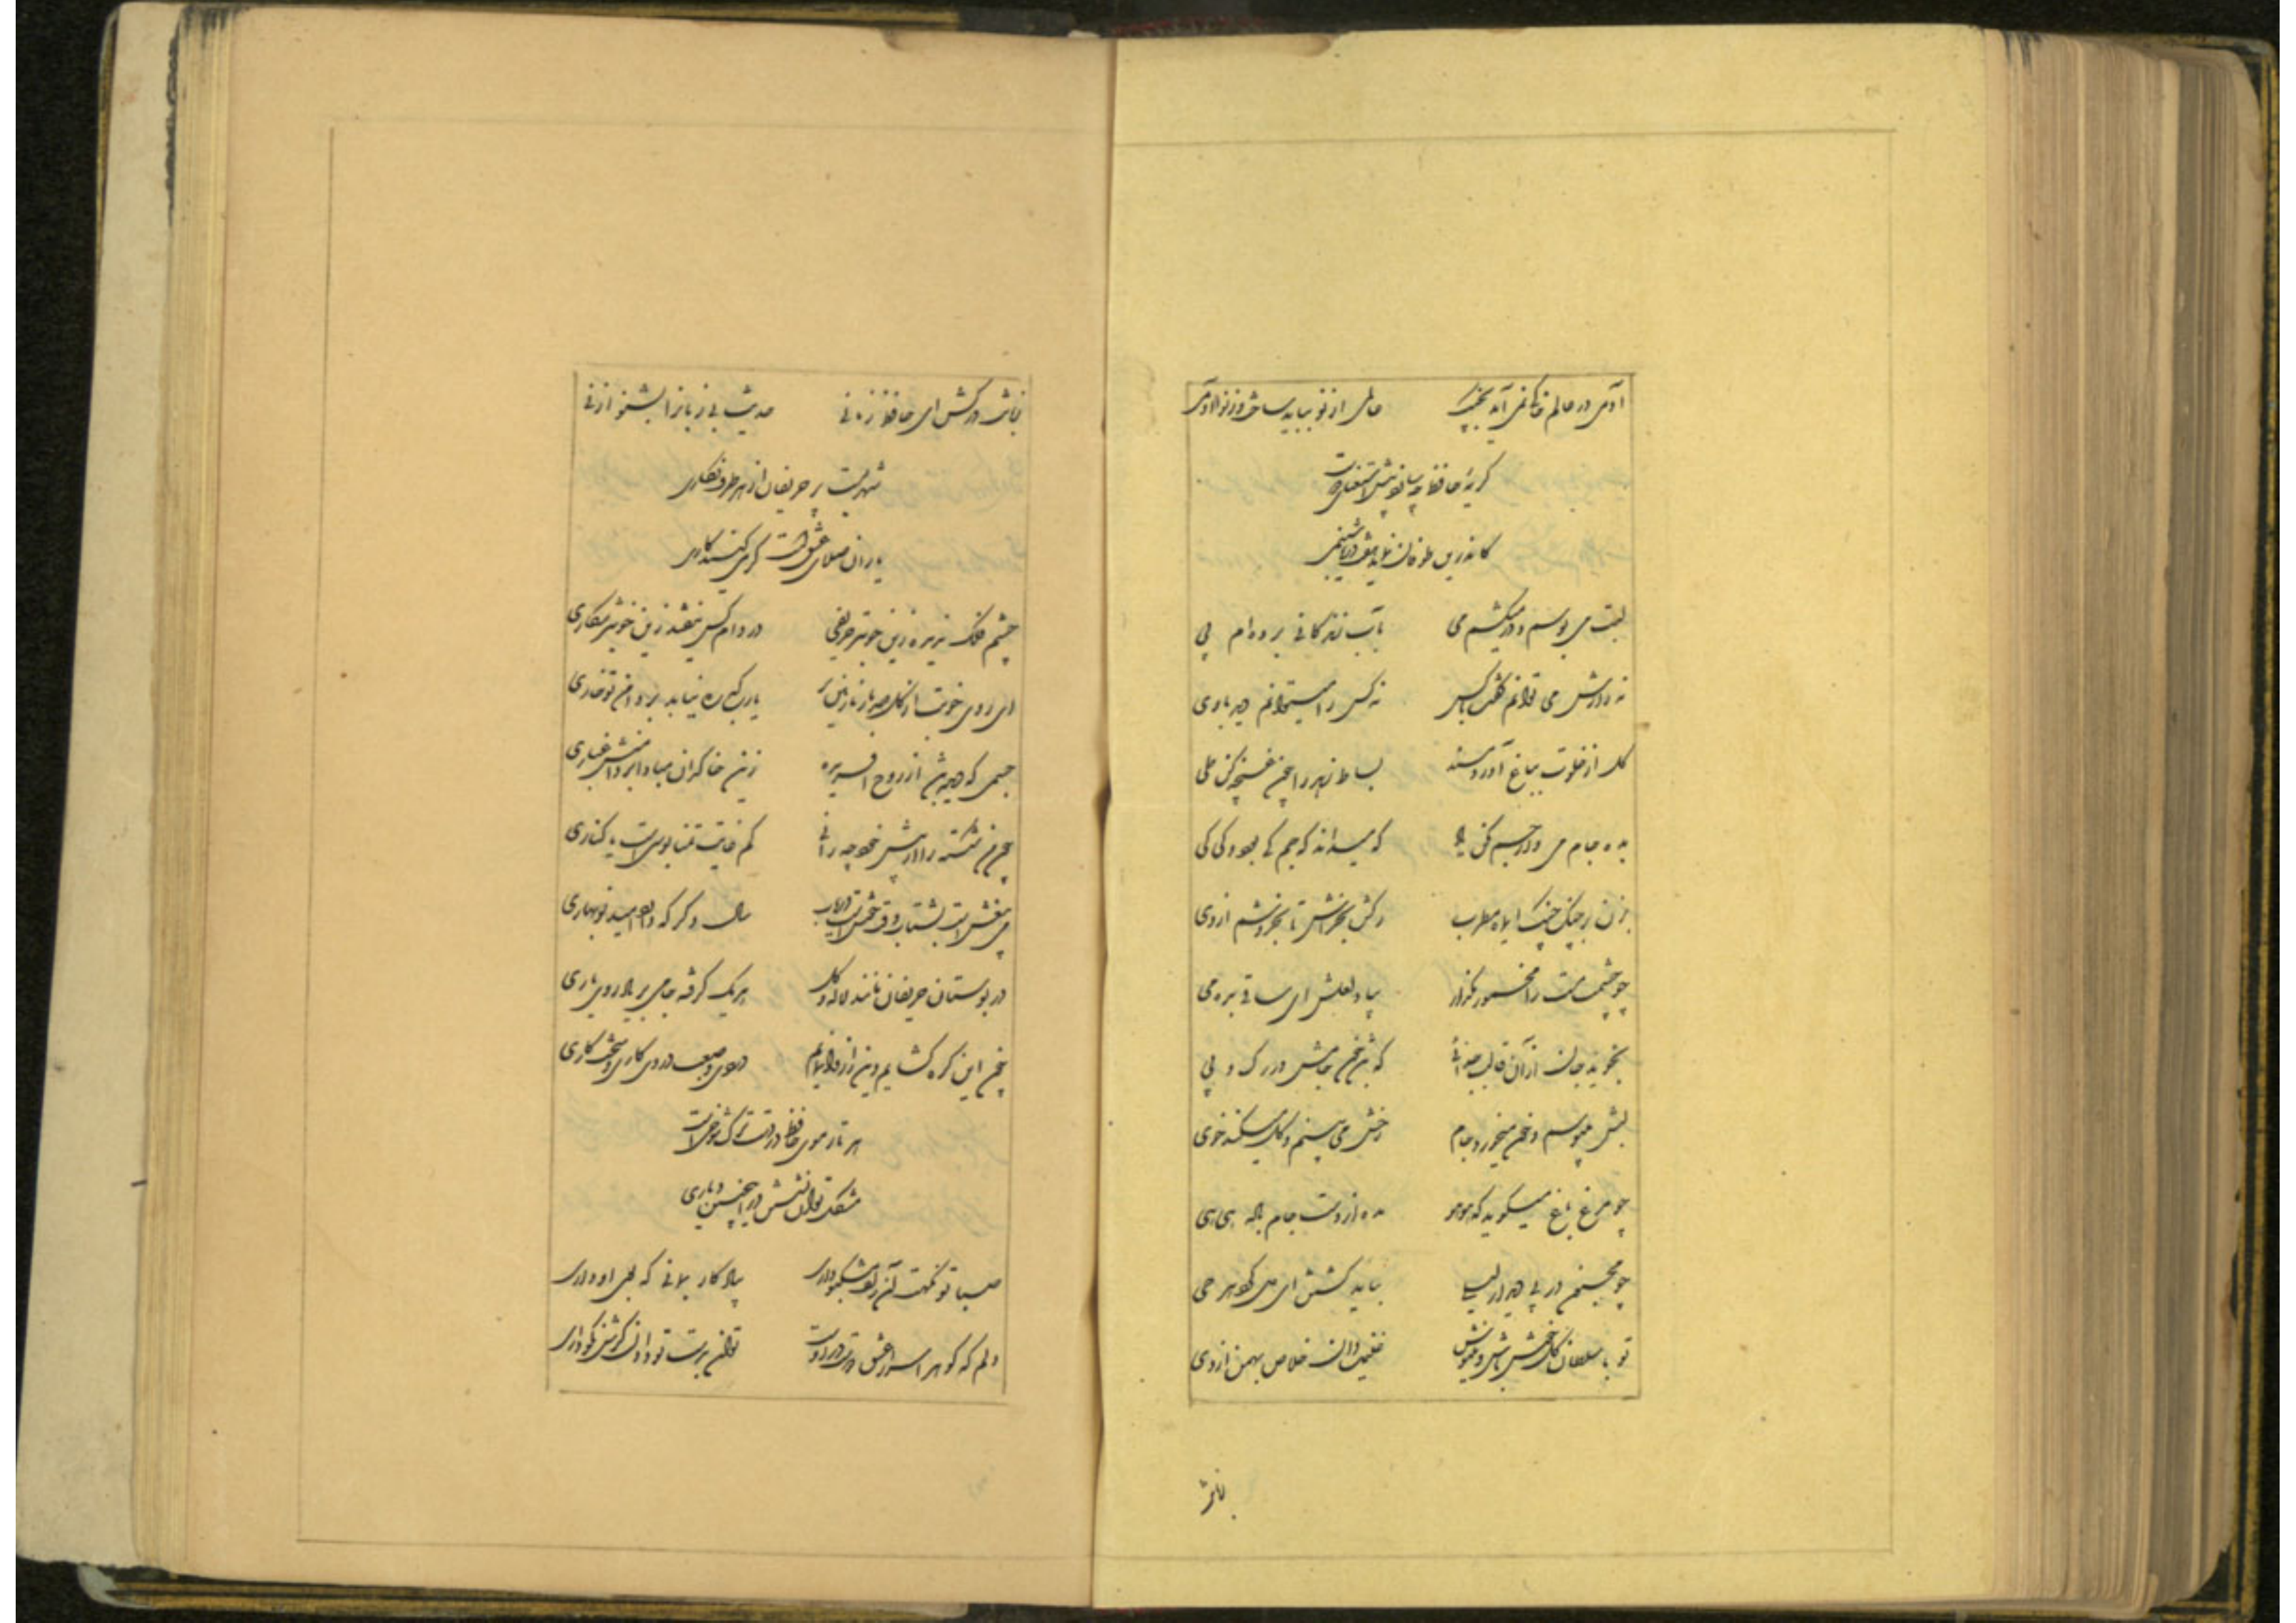 آدمی در عالم خاکی نمی آید بچنگ عالمی از نو بباید ساخت وز نو آدمی
گریهٔ حافظ چه سنجد پیش استغنای دوست
کاندرین طوفان نماید هفت دریا شبنمی
لبت می بوسم و در میکشم می بآب زندگانی برده ام پی
نه رازش می توانم گفت با کس نه کس را میتوانم دید با وی
گل از خلوت بباغ آورد مسند بساط زهد را چون غنچه کن طی
بده جام می و از جم مکن یاد که میداند که جم کی بود و کی کی
بزن در چنگ چنگ ای ماه مطرب رگش بخراش تا بخروشم از وی
چو چشمت مست را مخمور مگذار بیاد لعلش ای ساقی بده می
نجوید جان از آن قالب جدائی که باشد خون جامش در رگ و پی
لبش میبوسد و خون میخورد جام رخش می بیند و گل میکند خوی
چو مرغ باغ میگوید که هوهو مده از دست جام باده هی هی
چو مجنون در پی دیدار لیلی بباید گشتن ای دل گرد هر حی
تو با سلطان گل خوش باش و می نوش غنیمت دان خلاص بهمن از دی
زبانت
زبانت درکش ای حافظ زمانی حدیث بی زبانان بشنو از نی
شهریست پر حریفان از هر طرف نگاری
یاران صلای عشقست گر می کنید کاری
چشم فلک نبیند زین خوبتر حریفی در دام کس نیفتد زین خوبتر شکاری
ای روی خوبت از گل صد بار نازنین تر یارب که ره نیابد بر دامن تو خاری
جسمی که دیده باشد از روح آفریده زین خاکیان مبادا بر دامنش غباری
چون من شکسته را از پیش خود چه رانی کم غایت تمنا بوسی است یا کناری
می بیغش است بشتاب وقتی خوش است دریاب سال دگر که دارد امید نوبهاری
در بوستان حریفان مانند لاله و گل هر یک گرفته جامی بر یاد روی یاری
چون این گره گشایم وین راز وانمایم دردی و صعب دردی کاری و سخت کاری
هر تار موی حافظ در دست ترک شوخیست
مشکل توان نشستن در اینچنین دیاری
صبا تو نکهت آن زلف مشکبو داری بیادگار بمانی که بوی او داری
دلم که گوهر اسرار عشق در اوست توان بدست تو دادن گرش نکو داری